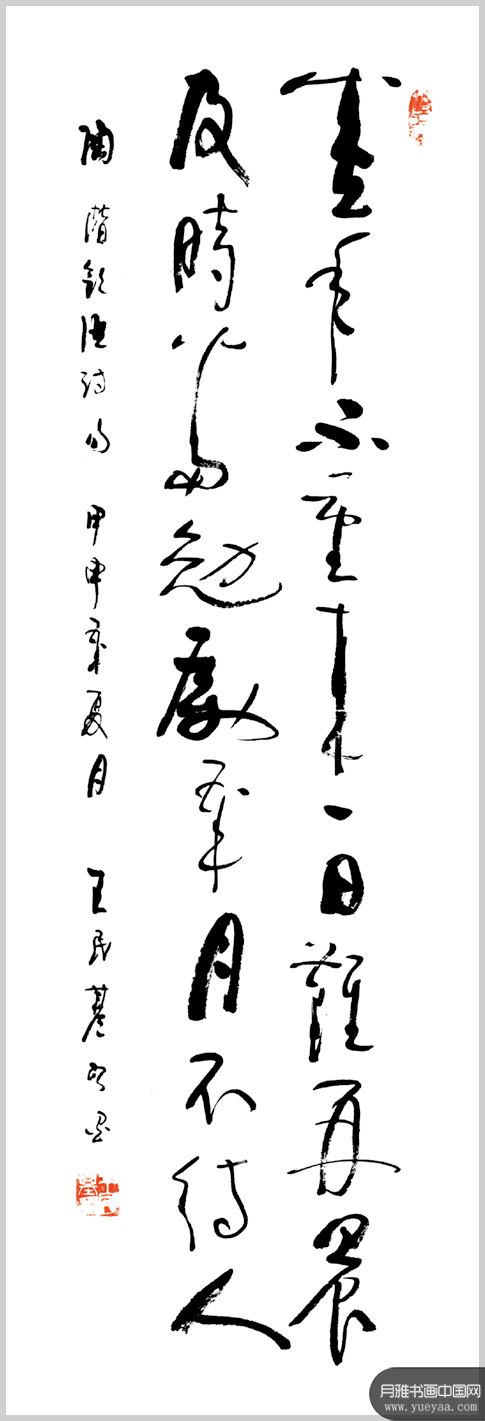 盛年不重来一日難再晨
及時當勉勵歲月不待人
陶潛詩句 甲申年夏月 王民
月雅书画中国网
www.yueyaa.com